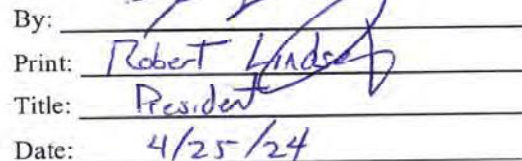 By:
Print: Robert Lindsey
Title: President
Date: 4/25/24